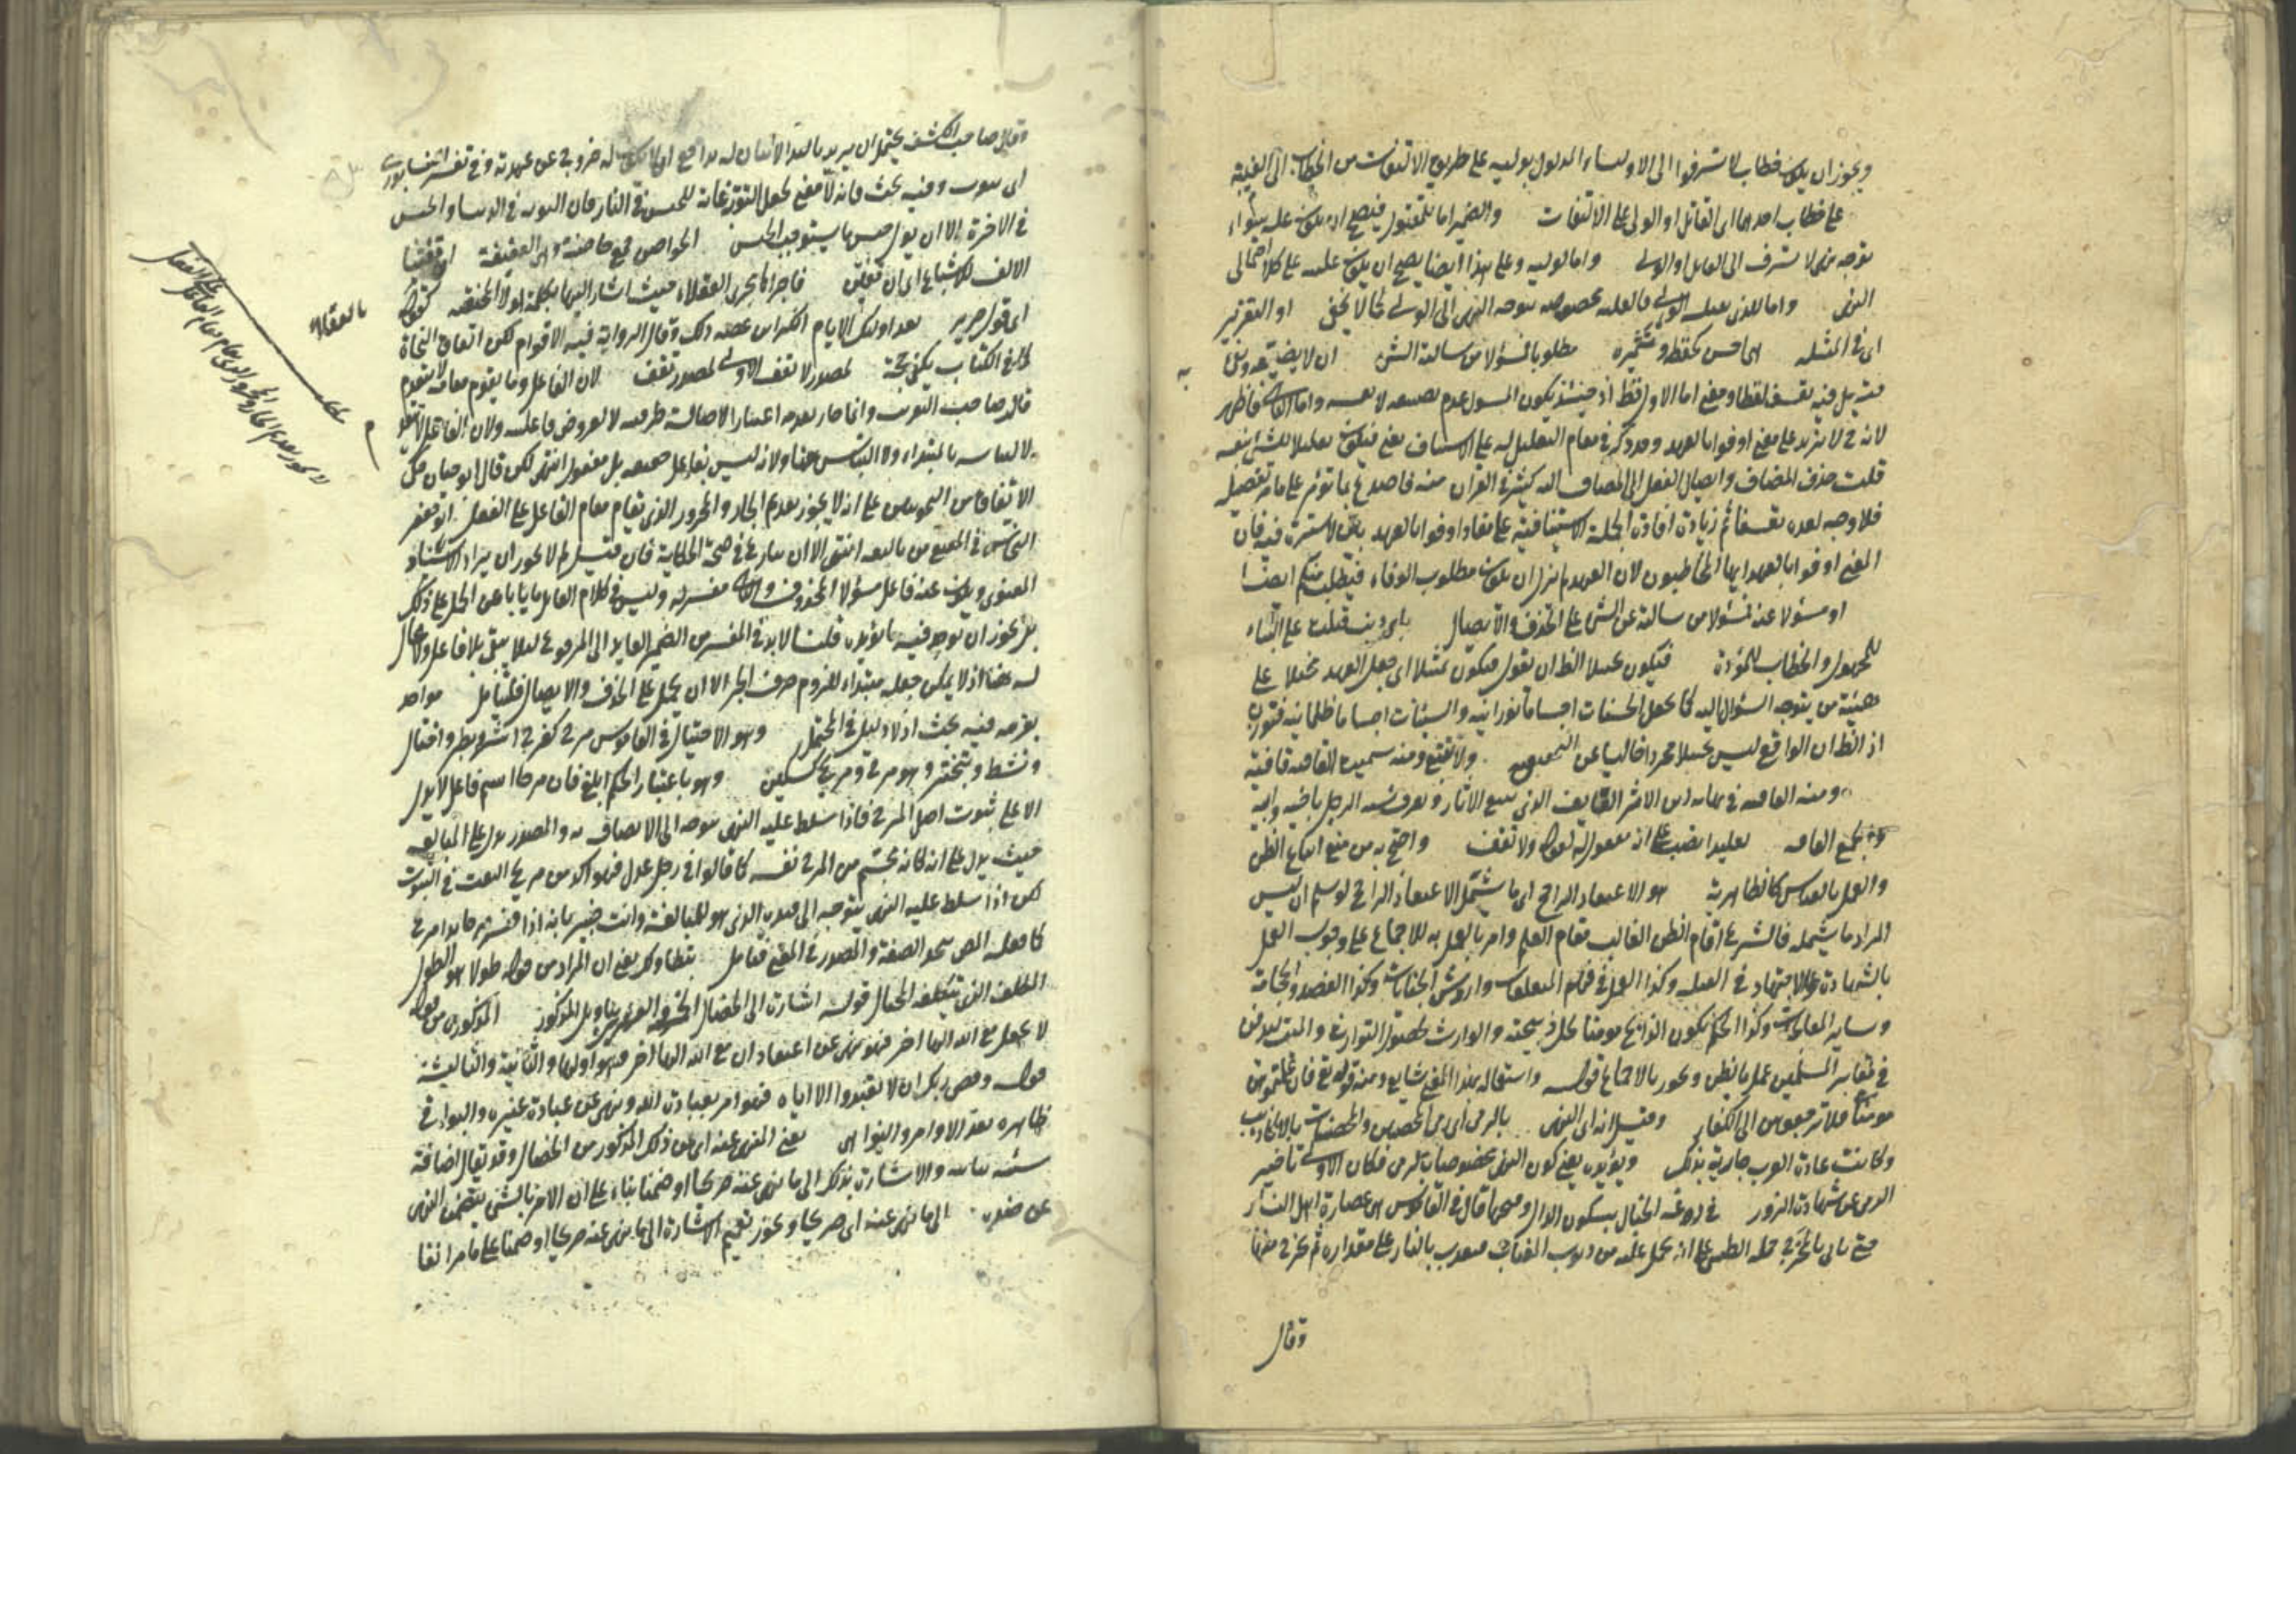 ويجوز ان يكون خطاب لا تسرفوا الى الاولياء المدلول بوليه على طريق الالتفات من الخطاب الى الغيبة
على خطاب احدهما اى القاتل او الولى على الالتفات والضمير اما للمقتول فيصلح ان يكون علة سواء
توجه نهى لا تسرف الى القاتل او الولى واما لوليه وعلى هذا ايضا يصح ان يكون علة على كلا احتمالى
النهى واما للذى يقتله الولى توجه النهى الى الولى كما لا يخفى او التعزير
اى فى المثلة اى احسن كحفظه وتثميره مطلوبا فمسؤلا من سالته الشئ ان لا يضيعه
فيه بل فيه تعسف لفظا ومعنى اما الاول فقط اذ حينئذ يكون المسؤل عدم تضييعه لا نفسه واما الثانى فاظهر
لانه لا يزيد على معنى اوفوا بالعهد وقد ذكر فى مقام التعليل له على الاستيناف يعنى فيكون تعليلا للشئ بنفسه
قلت حذف المضاف وايصال الفعل الى المضاف اليه كثير فى القران منه فاصدع بما تؤمر على ما مر تفصيله
فلا وجه لعده تعسفا ثم زيادة افادة الجملة الاستينافية على مفاد اوفوا بالعهد مما لا سترة فيه فان
المعنى اوفوا بالعهد ايها المخاطبون لان العهد لم يزل ان يكون مطلوب الوفاء فيطلب منكم ايضا
او مسؤلا عنه فمسئولا من سالته عن الشئ على الحذف والايصال باى ذنب قتلت على البناء
للمجهول والخطاب للمؤدة فيكون تخييلا الظ ان يقول فيكون تمثيلا اى جعل العهد مخيلا على
هيئة من يتوجه السؤال اليه كما يجعل الحسنات اجساما نورانية والسيئات اجساما ظلمانية فتوزن
اذ الظ ان الواقع ليس تخييلا مجردا خاليا عن ولا تتبع ومنه سميت القافية قافية
ومنه القافة فى نهاية ابن الاثير القايف الذى يتبع الاثار ويعرف شبه الرجل باخيه وابيه
ويجمع القافة تقليدا نصب على انه مفعول له لقوله ولا تقف واحتج به من منع اتباع الظن
والعمل بالقياس كالظاهرية هو الاعتقاد الراجح اى ما يشمل الاعتقاد الراجح لو سلم ان ليس
المراد ما يشمله فالشرع اقام الظن الغالب مقام العلم وامر بالعمل به للاجماع على وجوب العمل
بالشهادة وبالاجتهاد فى القبلة وكذا العمل فى قيم المتلفات واروش الجنايات وكذا الفصد والحجامة
وساير المعالجات وكذا الحكم بكون الذابح مؤمنا لحل ذبيحته والوارث لحصول التوارث والميت ليدفن
فى مقابر المسلمين عمل بالظن ويجوز بالاجماع قوله واستعماله بهذا المعنى شايع ومنه قوله تع فان علمتموهن
مومنات فلا ترجعوهن الى الكفار وقيل انه اى النهى بالرمى اى رمى المحصنين والمحصنات بالاكاذيب
وكانت عادة العرب جارية بذلك ويؤيده يعنى كون النهى مخصوصا بالرمى فكان الاولى تاخير
الرمى عن شهادة الزور فى ردغة الخبال بسكون الدال وفتحها قال فى القاموس هى عصارة اهل النار
حتى ياتى بالمخرج حمله الطيبى على انه يحمل عليه من ذنوب المغتاب فيعذب بالنار على مقداره ثم يخرج منها
وقال
وقال صاحب الكشف يحتمل ان يريد بالبعد الاتيان له خروج عن عهدته وفى تفسر النيسابورى
اى يتوب وفيه بحث فانه لا معنى لجعل التوبة غاية للحبس فى النار فان التوبة فى الدنيا والحبس
فى الاخرة الا ان يول حبس ما يستوجب الحبس الحواصن جمع حاصنة وهى العفيفة ان قفينا
الالف للاشباع اى ان قفين فاجراها مجرى العقلاء حيث اشار اليها بكلمة اولاء المختصة بالعقلاء كقوله
اى قول جرير بعد اولئك الايام الكواشى عقيب ذلك وقال الرواية فيه الاقوام لكن اتفاق النحاة
الكتاب يكفى حجة لمصدر لا تقف الاولى لمصدر تقف لان الفاعل وما يقوم مقامه لا يتقدم
قال صاحب التقريب وانما جاز تقديمه اعتبار الاصالة ظرفيته لا لعروض فاعليته ولان الفاعل لا يتقدم
لالتباسه بالمبتداء ولا التباس ههنا ولانه ليس بفاعل حقيقة بل مفعول انتهى لكن قال ابو حيان حكى
الاتفاق من النحويين على انه لا يجوز تقديم الجار والمجرور الذى يقام مقام الفاعل على الفعل ابو جعفر
النحاس فى المقنع من تاليفه انتهى الا ان ينازع فى صحة الحكاية فان قيل لم لا يجوز ان يراد الاسناد
المعنوى ويكون عنه فاعل مسؤلا المحذوف والثانى مفسر له وليس فى كلام القايل ما ياباه عن الحمل على ذلك
بل يجوز ان يوجد فيه ما يؤيده قلنا لا بد فى المفسر من الضمير العايد الى المرفوع ليلا يبقى بلا فاعل ولا مجال
له ههنا اذ لا يمكن جعله مبتداء للزوم حرف الجر الا ان يحمل على الحذف والايصال فليتامل مواخذ
بعزمه فيه بحث اذ لا دليل فى المحتمل وهو الاحتيال فى القاموس مرح كفرح اشر وبطر واختال
ونشط وتبختر وهو مرح ومريح كسكين وهو باعتبار الحكم ابلغ فان مرحا اسم فاعل لا يدل
الا على ثبوت اصل المرح فاذا سلط عليه النهى يتوجه الى الاتصاف به والمصدر يدل على المبالغة
حيث يدل على انه كانه تجسم من المرح نفسه كما قالوا فى رجل عدل فهو اكد من مريح النعت فى الثبوت
لكن اذا سلط عليه النهى يتوجه الى قيده الذى هو المبالغة وانت خبير بانه اذا فسر مرحا بذا مرح
كما فعله المص يتحد الصفة والمصدر فى المعنى فتامل بتطاولك يعنى ان المراد من قوله طولا هو الطول
المتكلف الذى يتكلفه المختال قوله اشارة الى الخصال الخمس والعشرين بتاويل المذكور المذكورة من قوله
لا تجعل مع الله الها اخر فهو نهى عن اعتقاد ان مع الله الها اخر فهو اولها والثانية والثالثة
قوله وقضى ربك ان لا تعبدوا الا اياه فهو امر بعبادة الله ونهى عن عبادة غيره والبواقى
ظاهره بعد الاوامر والنواهى يعنى المنهى عنه اى من ذلك المذكور من الخصال وقد يقال اضافة
سيئه بيانية والاشارة بذلك الى ما نهى عنه صريحا او ضمنا بناء على ان الامر بالشئ يتضمن النهى
عن ضده الى ما نهى عنه اى صريحا ويجوز تعميم الاشارة الى ما نهى عنه صريحا او ضمنا على ما مر انفا
بالعقلاء
لا يجوز تقديم الجار والمجرور الذى يقام مقام الفاعل على الفعل